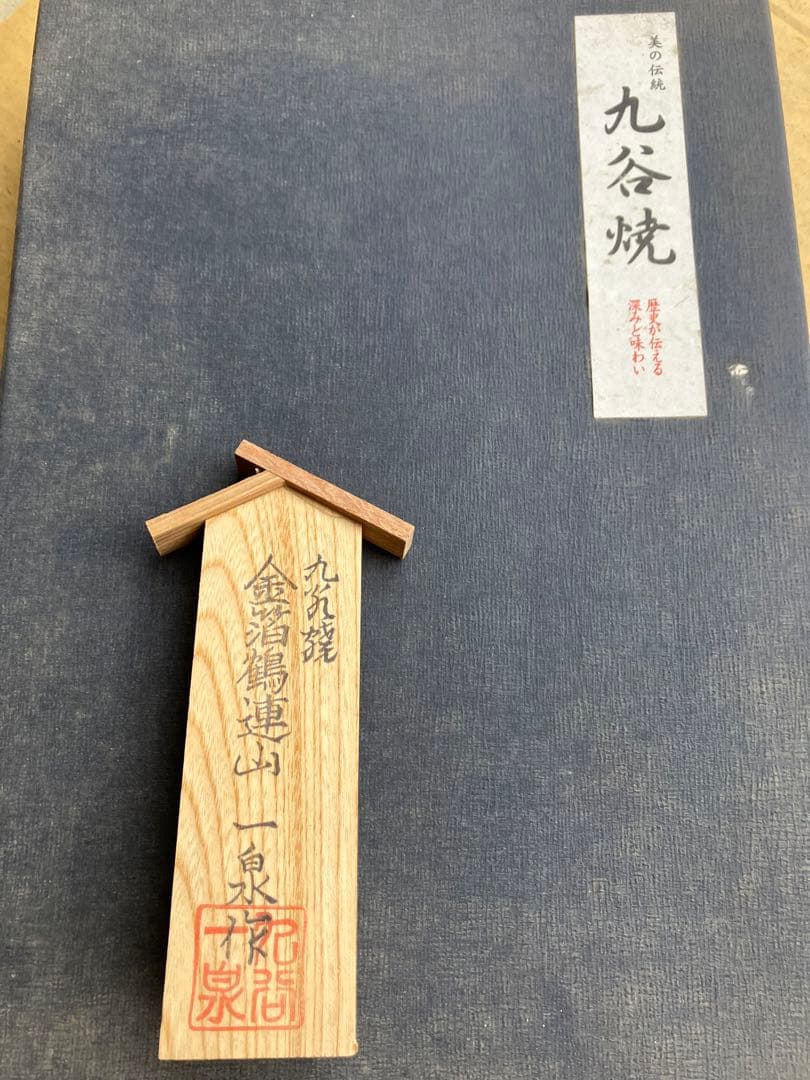 美の伝統
九谷焼
歴史が伝える
深みと味わい
九谷焼
金箔鶴連山 一泉作
九谷
一泉